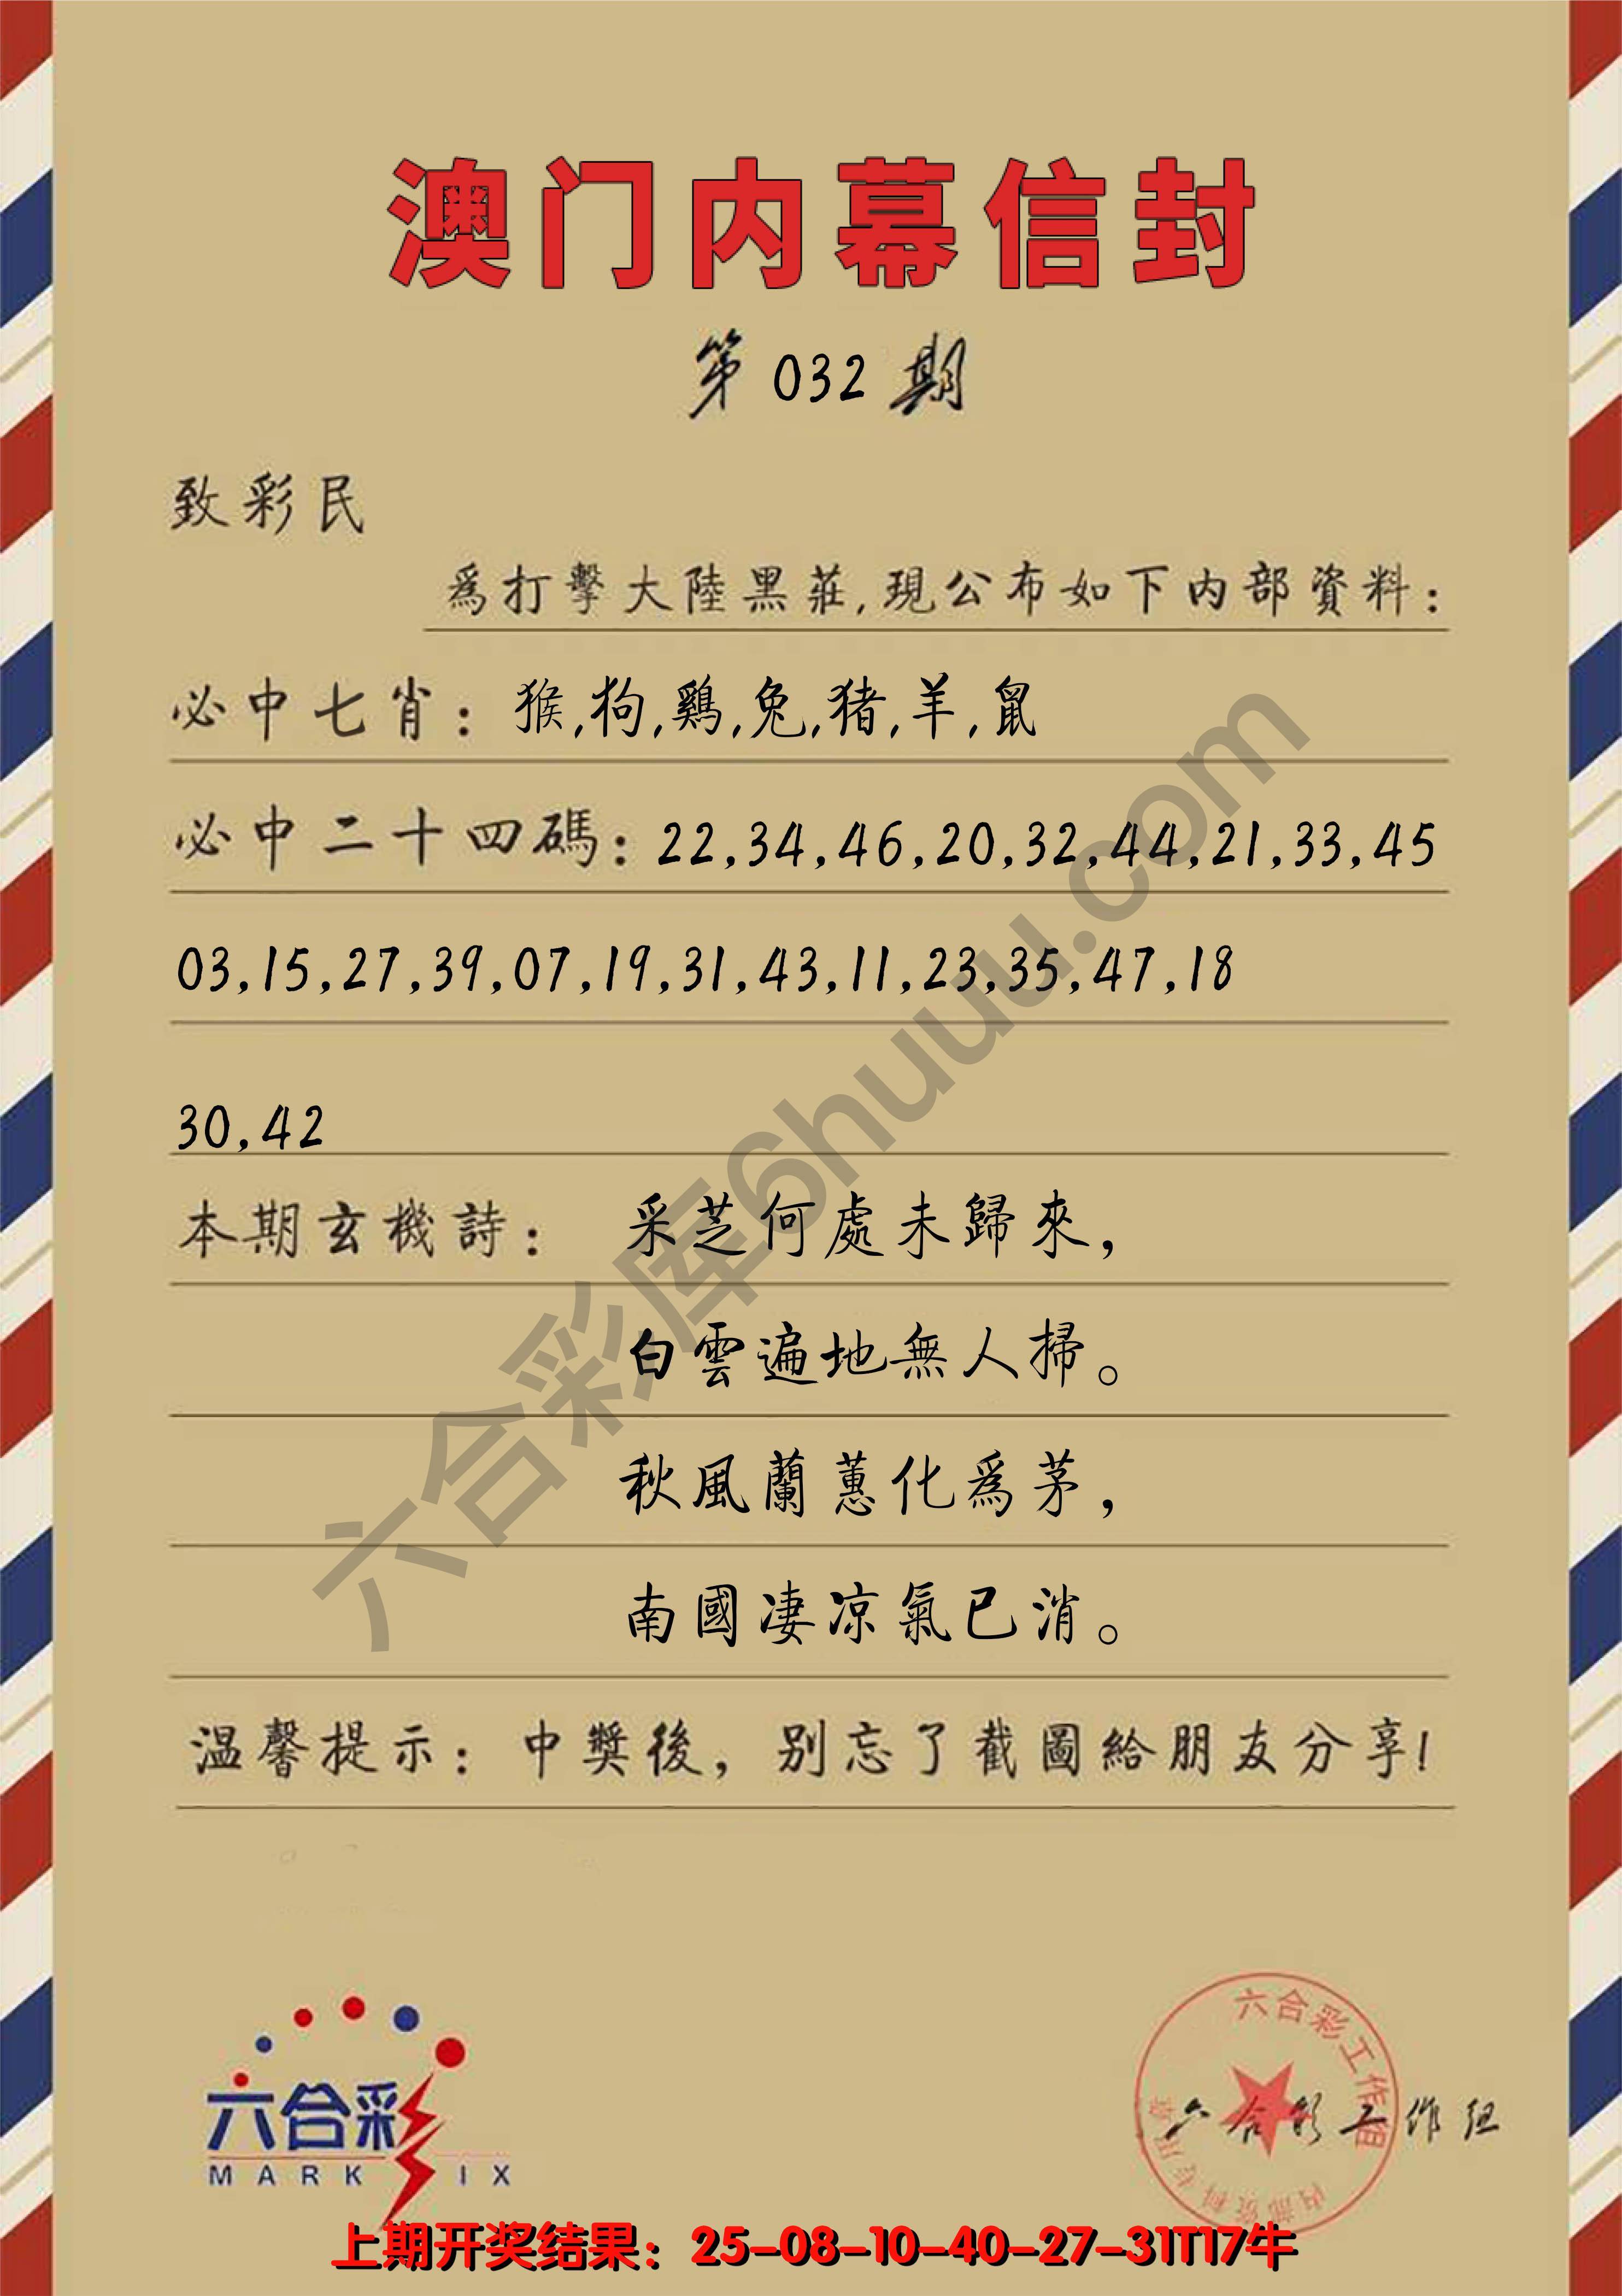 澳门内幕信封
第 032 期
致彩民
爲打擊大陸黑莊,現公布如下内部資料:
必中七肖: 猴,狗,鷄,兔,猪,羊,鼠
必中二十四碼: 22,34,46,20,32,44,21,33,45
03,15,27,39,07,19,31,43,11,23,35,47,18
30,42
本期玄機詩: 采芝何處未歸來,
白雲遍地無人掃。
秋風蘭蕙化爲茅,
南國凄凉氣已消。
温馨提示: 中獎後, 别忘了截圖給朋友分享!
六合彩库6huuu.com
六合彩
MARK SIX
六合彩工作组
六合彩工作组
上期开奖结果: 25-08-10-40-27-31T17牛